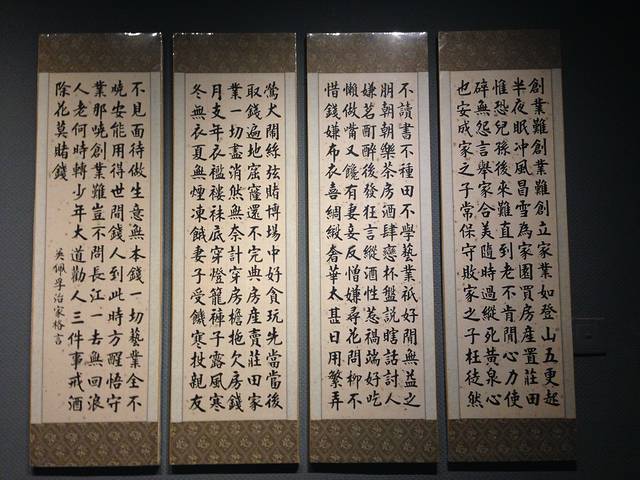 創業難創業難創立家業如登山五更起
半夜眠冲風冒雪為家園買房産置莊田
惟恐兒孫後來難直到老不肯閒心力使
碎無怨言舉家合美隨時過縱死黃泉心
也安成家之子常保守敗家之子枉徒然
不讀書不種田不學藝業祇好閒無益之
朋朝朝樂茶房酒肆戀杯盤説瞎話討人
嫌茗酊醉後發狂言縱酒性惹禍端好吃
懶做嘴又饞有妻妾反憎嫌尋花問柳不
惜錢嫌布衣喜綢緞奢華太甚日用繁弄
鶯犬鬧絲弦賭博場中好貪玩先當當後
取錢遍地窟窿還不完典房産賣莊田家
業一切盡消然無奈計穿房檐拖欠房錢
月支年衣襤褸袜底穿燈籠褲子露風寒
冬無衣夏無煙凍餓妻子受饑寒扯親友
不見面待做生意無本錢一切藝業全不
曉安能用得世間錢人到此時方醒悟守
業那曉創業難豈不問長江一去無回浪
人老何時轉少年大道勸人三件事戒酒
除花莫賭錢
吳佩孚治家格言